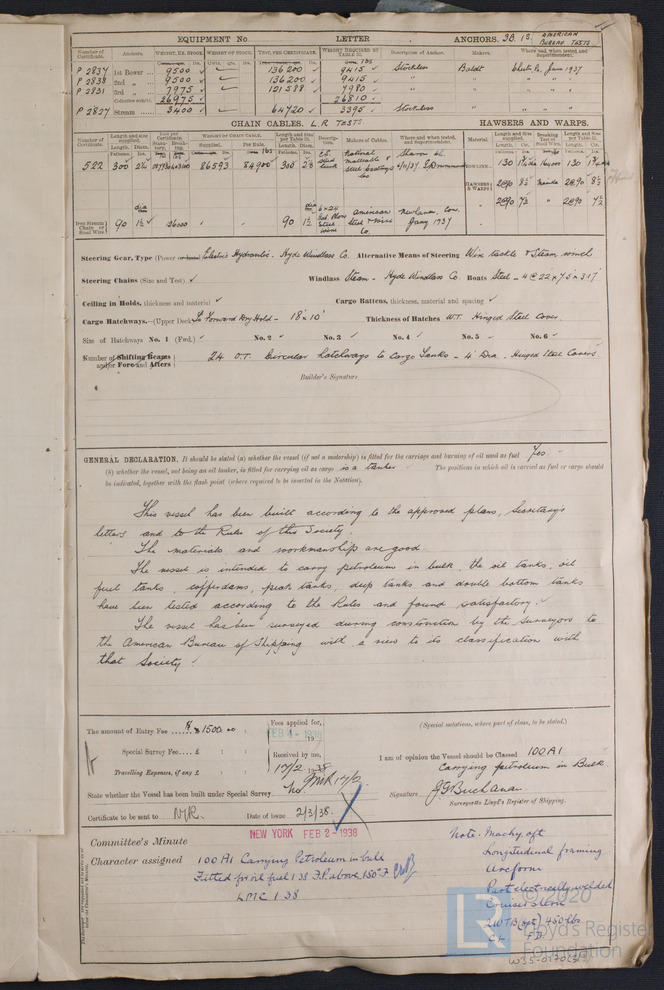 EQUIPMENT No LETTER . ANCHORS. 3B. 1S. AMERICAN BUREAU TESTS
Number of Certificate. Anchors. WEIGHT, EX. STOCK. WEIGHT OF STOCK. TEST, PER CERTIFICATE. WEIGHT REQUIRED BY TABLE 53. Description of Anchor. Makers. Where and when tested, and Superintendent.
P 2837 1st Bower ... 9500 ✓ 136200 ✓ 9415 ✓ Stockless Baldt Chester, Pa. June 1937
P 2838 2nd " ... 9500 ✓ 136200 ✓ 9415 ✓ " " " " "
P 2831 3rd " ... 7975 ✓ 121588 ✓ 7980 ✓ " " " " "
Collective weight. 26975 26810
P 2827 Stream ... 3400 ✓ 64720 ✓ 3395 ✓ Stockless " " "
CHAIN CABLES. L.R. TESTS HAWSERS AND WARPS.
Number of Certificate. Length and size supplied. Test per Certificate. WEIGHT OF CHAIN CABLE. Length and size per Table 53. Description. Makers of Cables. Where and when tested, and Superintendent. Material Length and size supplied. Breaking Test of Steel Wire. Length and size per Table 53.
522 300 86593 84900 300 National Malleable & Steel Castings Co Sharon 130 130
HAWSERS & WARPS 2@90 8½ Manila 2@90 8½
2@90 7½ " 2@90 7½
Iron Stream Chain or Steel Wire 90 1½ ✓ 136000 ✓ 90 1½ 6 x 24 Steel Wire American Steel & Wire Co. New Haven, Con. Jany 1937
Steering Gear, Type (Power or hand) Electric Hydraulic. Hyde Windlass Co. Alternative Means of Steering Wire tackle & Steam winch
Steering Chains (Size and Test) ✓ Windlass Steam - Hyde Windlass Co. Boats Steel - 4 @ 22' x 7.5' x 3.17'
Ceiling in Holds, thickness and material ✓ Cargo Battens, thickness, material and spacing ✓
Cargo Hatchways.—(Upper Deck) To Forward Dry Hold - 18' x 10' Thickness of Hatches W.T. Hinged Steel Cover.
Size of Hatchways No. 1 (Fwd.) ✓ No. 2 ✓ No. 3 ✓ No. 4 ✓ No. 5 ✓ No. 6 ✓
Number of Shifting Beams and/or Fore and Afters 24 O.T. Circular hatchways to Cargo Tanks - 4' Dia. Hinged Steel Covers.
Builder's Signature
GENERAL DECLARATION. It should be stated (a) whether the vessel (if not a motorship) is fitted for the carriage and burning of oil used as fuel Yes
(b) whether the vessel, not being an oil tanker, is fitted for carrying oil as cargo is a tanker The positions in which oil is carried as fuel or cargo should
be indicated, together with the flash point (where required to be inserted in the Notation).
This vessel has been built according to the approved plans, Secretary's
letters and to the Rules of this Society.
The materials and workmanship are good.
The vessel is intended to carry petroleum in bulk, the oil tanks, oil
fuel tanks, cofferdams, peak tanks, deep tanks, and double bottom tanks
have been tested according to the Rules and found satisfactory.
The vessel has been surveyed during construction by the Surveyors to
the American Bureau of Shipping with a view to its classification with
that Society.
The amount of Entry Fee ...... $ 1500.00 : Fees applied for, FEB 4 - 1938 (Special notations, where part of class, to be stated.)
Special Survey Fee.... £ : : Received by me,
Travelling Expenses, if any £ : : 17/2 1938
I am of opinion the Vessel should be Classed 100A1
Carrying petroleum in Bulk
State whether the Vessel has been built under Special Survey No Signature J.G. Buchanan
Surveyor to Lloyd's Register of Shipping.
Certificate to be sent to N.Y.K. Date of issue 2/3/38.
NEW YORK FEB 2 - 1938
Committee's Minute
Character assigned 100A1 Carrying Petroleum in bulk
Fitted for oil fuel 1.38 F.P. above 150°F
LMC 1.38
Note. Machy aft
Longitudinal framing
Arcform
Part electrically welded
Cruiser Stern
2WTB (spt) 450 lbs
CL F.D.
© 2020
LR
Lloyd's Register
Foundation